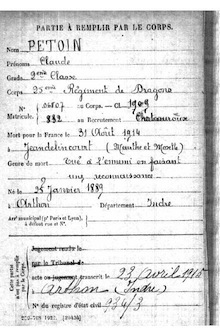 PARTIE À REMPLIR PAR LE CORPS.
Nom PETOIN
Prénoms Claude
Grade 2eme Classe
Corps 25eme Régiment de Dragons
N° au Corps. — Cl. 1909
Matricule. 882 au Recrutement Chateauroux
Mort pour la France le 31 Août 1914
à Jeandelincourt (Meurthe et Moselle)
Genre de mort Tué à l'ennemi en faisant
une reconnaissance
Né le 28 Janvier 1889
à Arthon Département Indre
Arr' municipal (pr Paris et Lyon),
à défaut rue et N°.
Cette partie n'est pas à remplir par le Corps.
Jugement rendu le
par le Tribunal de
acte ou jugement transcrit le 23 Avril 1915
à Arthon (Indre)
N° du registre d'état civil 934/3